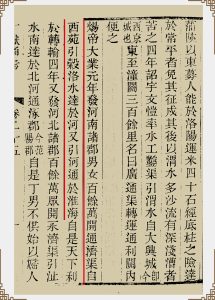 蒲陜以東募人能於洛陽運米四十石經底柱之險達
於常平者免其征戍其後以渭水多沙流有深淺漕者
苦之四年詔宇文愷率水工鑿渠引渭水自大興城即今
西京城東至潼關三百餘里名曰廣通渠轉運通利關內
便之
煬帝大業元年發河南諸郡男女百餘萬開通濟渠自
西苑引穀洛水達於河又引河通於淮海自是天下利
於轉輸四年又發河北諸郡百餘萬眾開永濟渠引沁
水南達於河北通涿郡今范陽郡自是丁男不供始以婦人